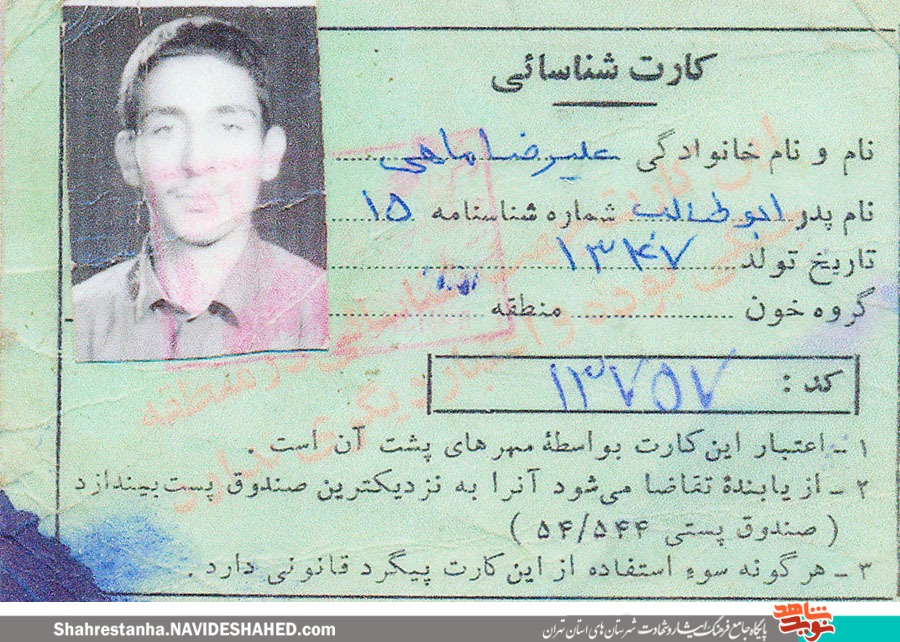 کارت شناسائی
نام و نام خانوادگی علیرضا ماهی
نام پدر ابوطالب شماره شناسنامه ۱۵
تاریخ تولد ۱۳۴۷
گروه خون منطقه
کد : ۱۳۷۵۷
۱ - اعتبار این کارت بواسطهٔ مهرهای پشت آن است .
۲ - از یابندهٔ تقاضا می‌شود آنرا به نزدیکترین صندوق پست بیندازد
( صندوق پستی ۵۴/۵۴۴ )
۳ - هرگونه سوء استفاده از این کارت پیگرد قانونی دارد .
نوید شاهد
پایگاه جامع فرهنگ ایثار و شهادت شهرستان های استان تهران
Shahrestanha.NAVIDESHAHED.com